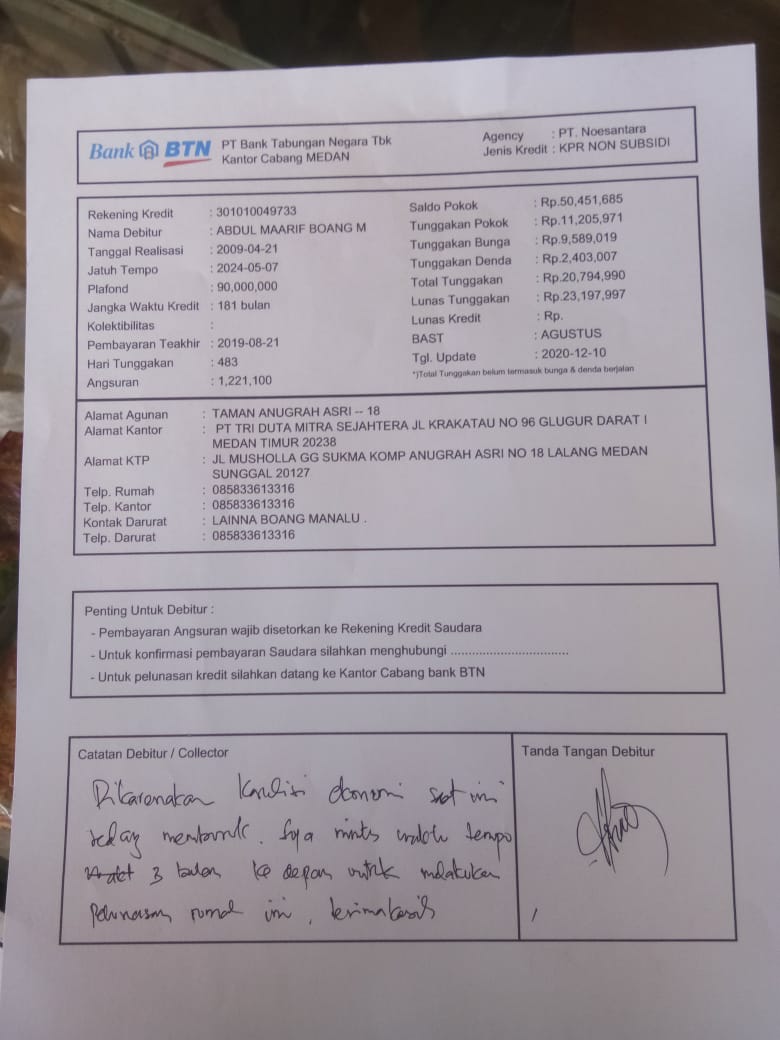 Bank BTN PT Bank Tabungan Negara Tbk
Kantor Cabang MEDAN
Agency : PT. Noesantara
Jenis Kredit : KPR NON SUBSIDI
Rekening Kredit : 301010049733
Nama Debitur : ABDUL MAARIF BOANG M
Tanggal Realisasi : 2009-04-21
Jatuh Tempo : 2024-05-07
Plafond : 90,000,000
Jangka Waktu Kredit : 181 bulan
Kolektibilitas :
Pembayaran Teakhir : 2019-08-21
Hari Tunggakan : 483
Angsuran : 1,221,100
Saldo Pokok : Rp.50,451,685
Tunggakan Pokok : Rp.11,205,971
Tunggakan Bunga : Rp.9,589,019
Tunggakan Denda : Rp.2,403,007
Total Tunggakan : Rp.20,794,990
Lunas Tunggakan : Rp.23,197,997
Lunas Kredit : Rp.
BAST : AGUSTUS
Tgl. Update : 2020-12-10
*)Total Tunggakan belum termasuk bunga & denda berjalan
Alamat Agunan : TAMAN ANUGRAH ASRI -- 18
Alamat Kantor : PT TRI DUTA MITRA SEJAHTERA JL KRAKATAU NO 96 GLUGUR DARAT I
MEDAN TIMUR 20238
Alamat KTP : JL MUSHOLLA GG SUKMA KOMP ANUGRAH ASRI NO 18 LALANG MEDAN
SUNGGAL 20127
Telp. Rumah : 085833613316
Telp. Kantor : 085833613316
Kontak Darurat : LAINNA BOANG MANALU .
Telp. Darurat : 085833613316
Penting Untuk Debitur :
- Pembayaran Angsuran wajib disetorkan ke Rekening Kredit Saudara
- Untuk konfirmasi pembayaran Saudara silahkan menghubungi .................................
- Untuk pelunasan kredit silahkan datang ke Kantor Cabang bank BTN
Catatan Debitur / Collector
Dikarenakan kondisi ekonomi saat ini
sedang memburuk. Saya minta waktu tempo
3 bulan ke depan untuk melakukan
pelunasan rumah ini, terimakasih
Tanda Tangan Debitur